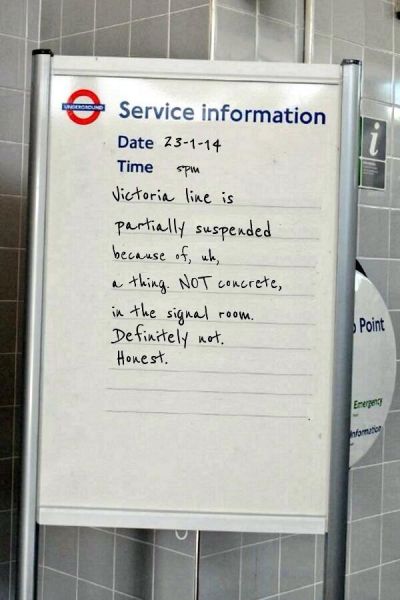 UNDERGROUND
Service information
Date 23-1-14
Time 5pm
Victoria line is
partially suspended
because of, uh,
a thing. NOT concrete,
in the signal room.
Definitely not.
Honest.
i
Point
Emergency
Information